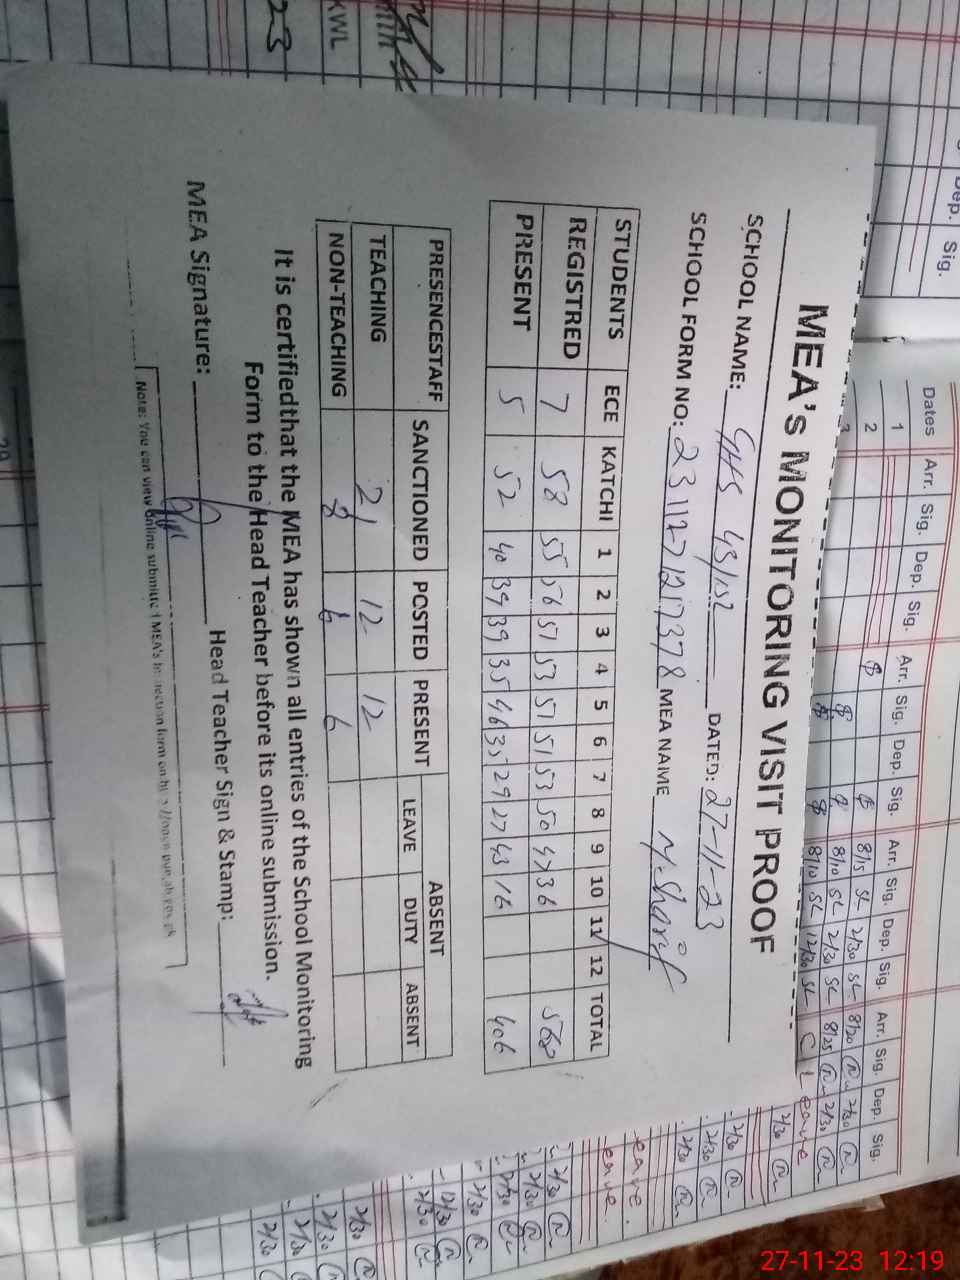 MEA's MONITORING VISIT PROOF
SCHOOL NAME: GHS 43/15L DATED: 27-11-23
SCHOOL FORM NO: MEA NAME M. Sharif
STUDENTS ECE KATCHI 1 2 3 4 5 6 7 8 9 10 11 12 TOTAL
REGISTRED 7 58 55 56 51 53 51 51 53 50 47 36 568
PRESENT 5 52 40 39 39 35 46 35 29 27 43 16 406
PRESENCESTAFF SANCTIONED POSTED PRESENT ABSENT
LEAVE DUTY ABSENT
TEACHING 21 12 12
NON-TEACHING 8 6 6
It is certifiedthat the MEA has shown all entries of the School Monitoring
Form to the Head Teacher before its online submission.
MEA Signature: Head Teacher Sign & Stamp:
Note: You can view online submitted MEA's Inspection form on
Dates Arr. Sig. Dep. Sig. Arr. Sig. Dep. Sig. Arr. Sig. Dep. Sig. Arr. Sig. Dep. Sig.
1
2 8/15 SL 2/30 SL 8/20 2/30
3 8/10 SL 2/30 SL 8/25 2/30
8/10 SL 12/30 SL C Leave
Dep. Sig.
KWL
23
27-11-23 12:19